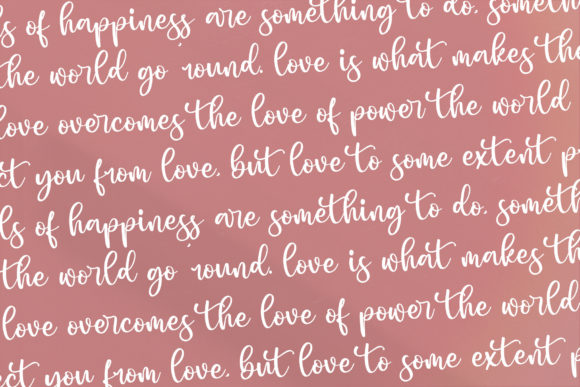 ls of happiness are something to do. someth
the world go round. love is what makes the
love overcomes the love of power the world
ct you from love. but love to some extent p
ls of happiness are something to do. someth
the world go round. love is what makes the
love overcomes the love of power the world
ect you from love. but love to some extent p